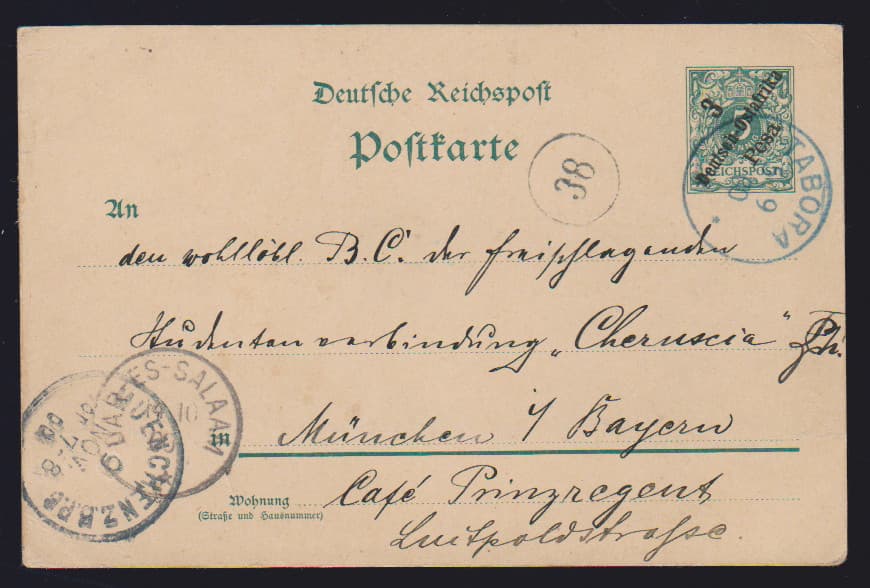 Deutsche Reichspost
Postkarte
3
Deutsch-Ostafrika
Pesa
5
REICHSPOST
TABORA
9
38
An
den wohllöbl. B.C. der freischlagenden
Studentenverbindung „Cheruscia"
DAR-ES-SALAAM
10
MUENCHEN 2 B.P.P.
7. NOV.
in
München i/ Bayern
Wohnung
(Straße und Hausnummer)
Café Prinzregent
Luitpoldstrasse.